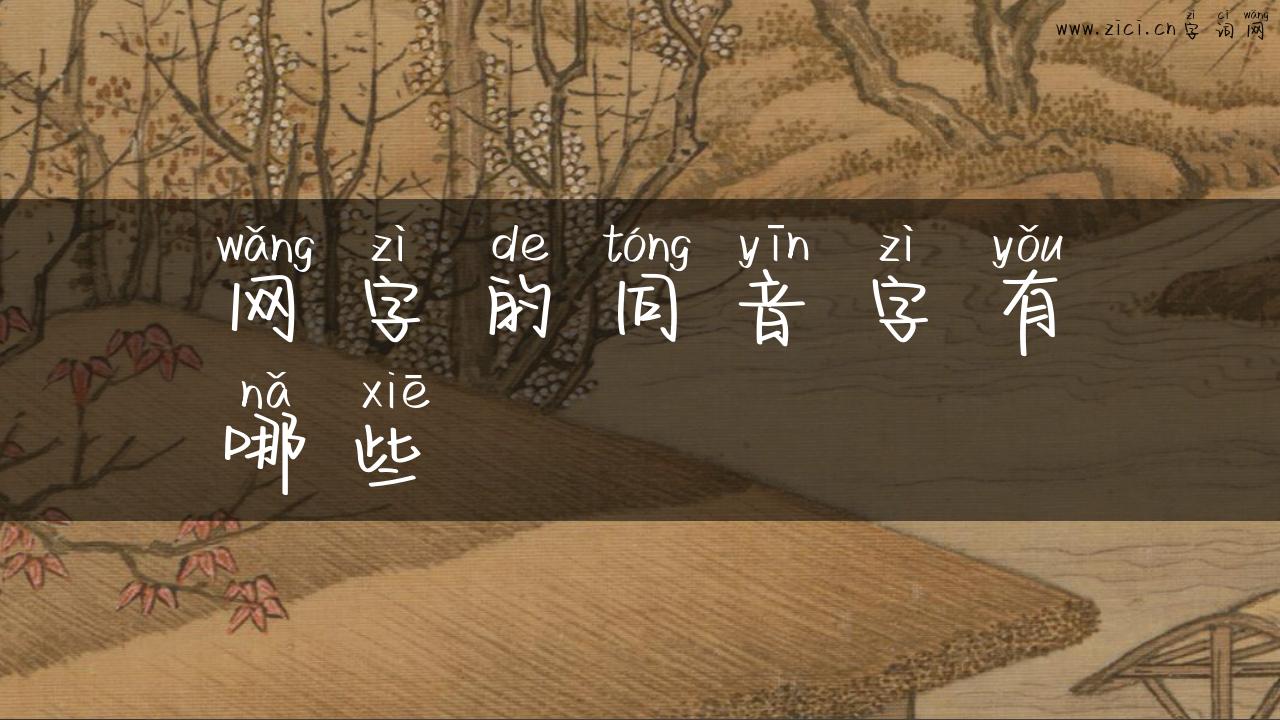 zì cí wǎng
www.zici.cn字词网
wǎng zì de tóng yīn zì yǒu
网字的同音字有
nǎ xiē
哪些